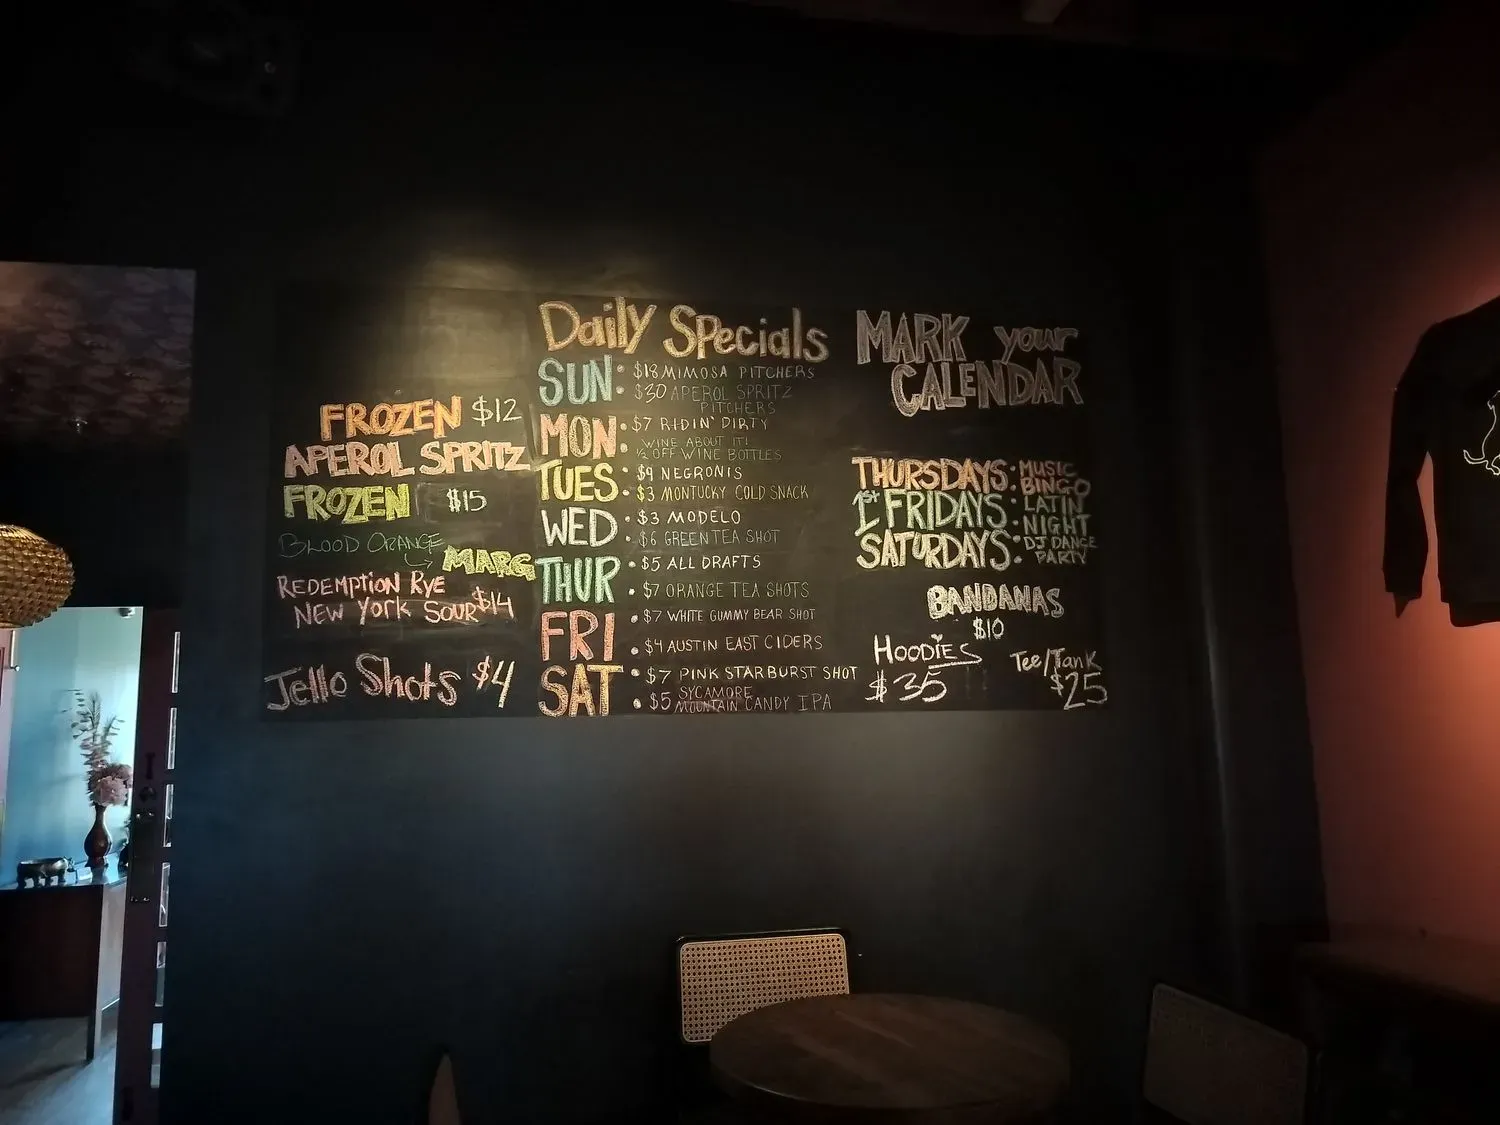 FROZEN $12
APEROL SPRITZ
FROZEN $15
BLOOD ORANGE
MARG
REDEMPTION RYE
NEW YORK SOUR $14
Jello Shots $4
Daily Specials
SUN • $18 MIMOSA PITCHERS
• $30 APEROL SPRITZ
PITCHERS
MON • $7 RIDIN' DIRTY
• WINE ABOUT IT!
½ OFF WINE BOTTLES
TUES • $9 NEGRONIS
• $3 MONTUCKY COLD SNACK
WED • $3 MODELO
• $6 GREEN TEA SHOT
THUR • $5 ALL DRAFTS
• $7 ORANGE TEA SHOTS
FRI • $7 WHITE GUMMY BEAR SHOT
• $4 AUSTIN EAST CIDERS
SAT • $7 PINK STARBURST SHOT
• $5 SYCAMORE
MOUNTAIN CANDY IPA
MARK your
CALENDAR
THURSDAYS: MUSIC
BINGO
1st FRIDAYS: LATIN
NIGHT
SATURDAYS: DJ DANCE
PARTY
BANDANAS
$10
HOODIES
$35
Tee/Tank
$25